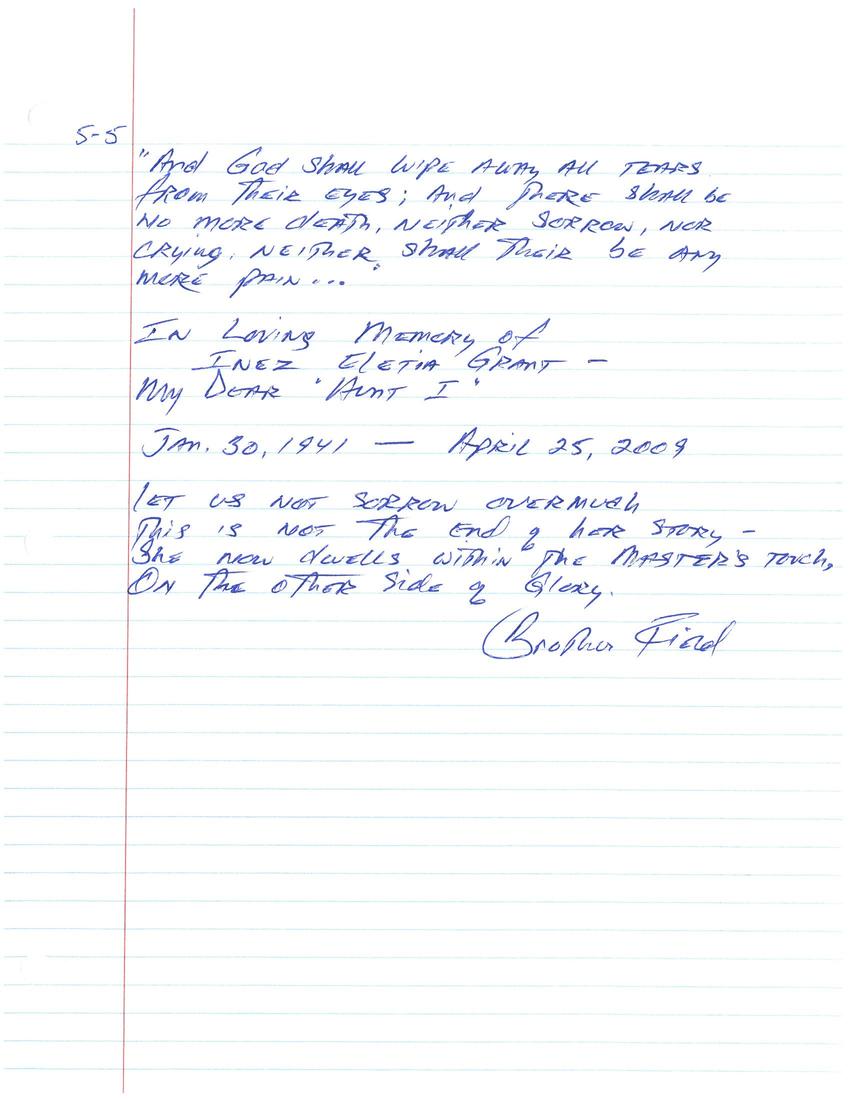 5-5
"And God shall wipe away all tears
from their eyes; and there shall be
no more death, neither sorrow, nor
crying, neither shall their be any
more pain..."
In Loving Memory of
Inez Eletia Grant –
My Dear "Aunt I"
Jan. 30, 1941 — April 25, 2009
Let us not sorrow overmuch
This is not the end of her story –
She now dwells within the Master's touch,
On the other side of Glory.
Brother